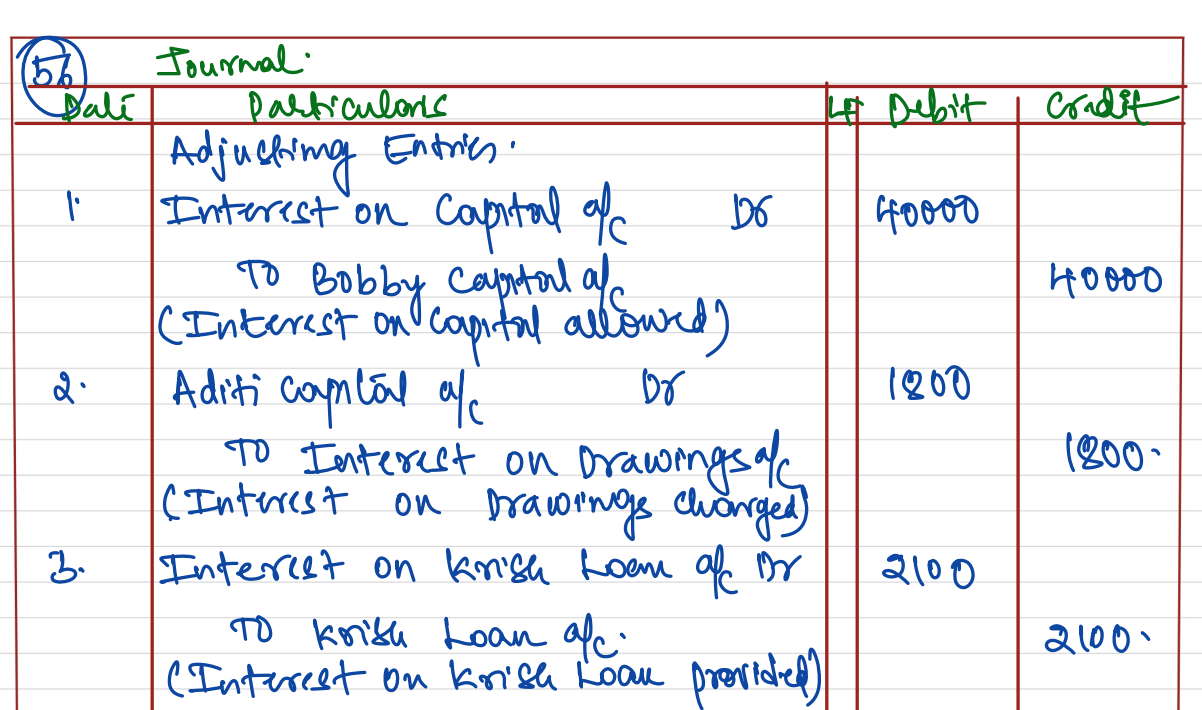 56 Journal.
Date Particulars LF Debit Credit
Adjusting Entries.
1. Interest on Capital a/c Dr 40000
To Bobby Capital a/c 40000
(Interest on Capital allowed)
2. Aditi Capital a/c Dr 1800
To Interest on Drawings a/c 1800.
(Interest on Drawings charged)
3. Interest on Krish Loan a/c Dr 2100
To Krish Loan a/c. 2100.
(Interest on Krish Loan provided)